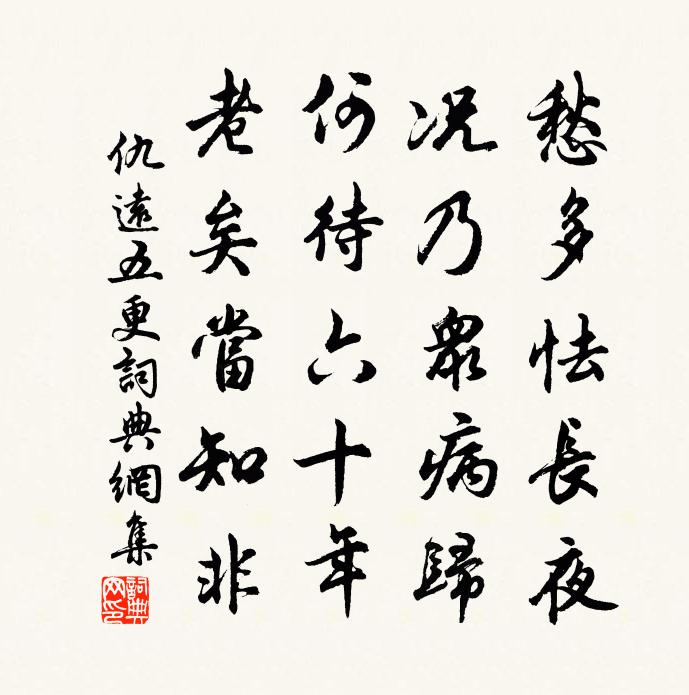 愁多怯長夜
况乃衆病歸
何待六十年
老矣當知非
仇遠五更詞典網集
詞典網印